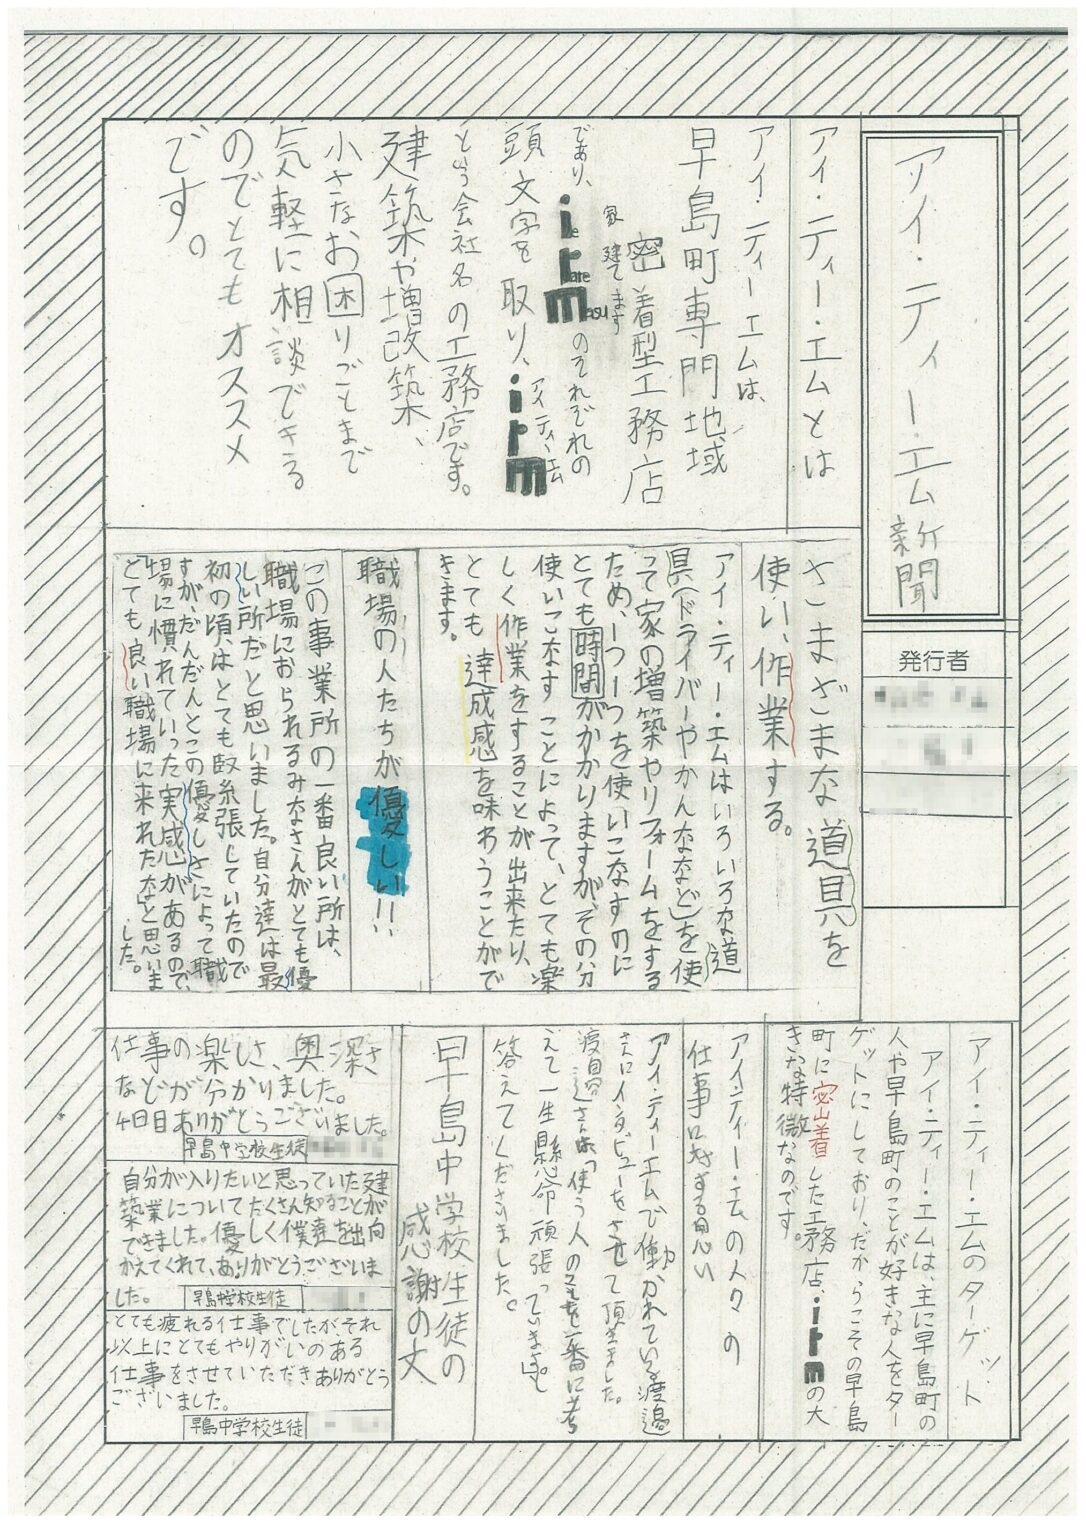 アイ・ティー・エム新聞
発行者
アイ・ティー・エムとは
アイ・ティーエムは、
早島町専門地域
密着型工務店
家 建てます
であり、
ie
tate
masu
のそれぞれの
頭文字を取り、itm
アイティーエム
という会社名の工務店です。
建築や増改築、
小さなお困りごとまで
気軽に相談できる
のでとてもオススメ
です。
さまざまな道具を
使い、作業する。
アイ・ティー・エムはいろいろな道
具(ドライバーやかんななど)を使
って家の増築やリフォームをする
ため、一つ一つを使いこなすのに
とても時間がかかりますが、その分
使いこなすことによって、とても楽
しく作業をすることが出来たり、
とても達成感を味わうことがで
きます。
職場の人たちが優しい!!
この事業所の一番良い所は、
職場におられるみなさんがとても優
しい所だと思いました。自分達は最
初の頃、はとても緊張していたので
すが、だんだんとこの優しさによって職
場に慣れていった実感があるので、
とても良い職場に来れたな」と思いま
した。
アイ・ティー・エムのターゲット
アイ・ティー・エムは、主に早島町の
人や早島町のことが好きな人をター
ゲットにしており、だからこその早島
町に密着した工務店、itmの大
きな特徴なのです。
アイ・ティー・エムの人々の
仕事に対する思い
アイ・ティーエムで働かれている渡邉
さんにインタビューをさせて頂きました。
渡邉さんは、「使う人のことを一番に考
えて一生懸命頑張っています。」と
答えてくださいました。
早島中学校生徒の
感謝の文
仕事の楽しさ、奥深さ
などが分かりました。
4日目ありがとうございました。
早島中学校生徒
自分が入りたいと思っていた建
築業についてたくさん知ることが
できました。優しく僕達を出向
かえてくれて、ありがとうございま
した。
早島中学校生徒
とても疲れる仕事でしたが、それ
以上にとてもやりがいのある
仕事をさせていただきありがとう
ございました。
早島中学校生徒